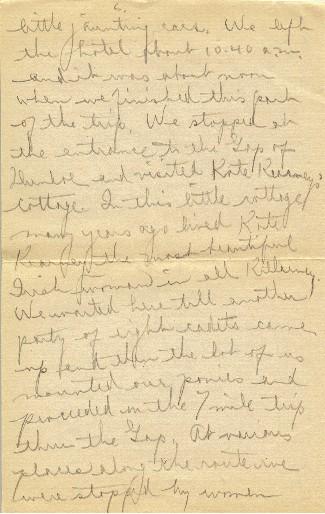 6.
little jaunting cars. We left
the hotel about 10:40 a.m.
and it was about noon
when we finished this part
of the trip. We stopped at
the entrance to the Gap of
Dunloe and visited Kate Kearney's
cottage. In this little cottage
many years ago lived Kate
Kearney the most beautiful
Irish woman in all Killarney.
We waited here till another
party of eight cadets came
up and then the lot of us
mounted our ponies and
proceeded on the 7 mile trip
thru the Gap. At various
places along the route we
were stopped by women